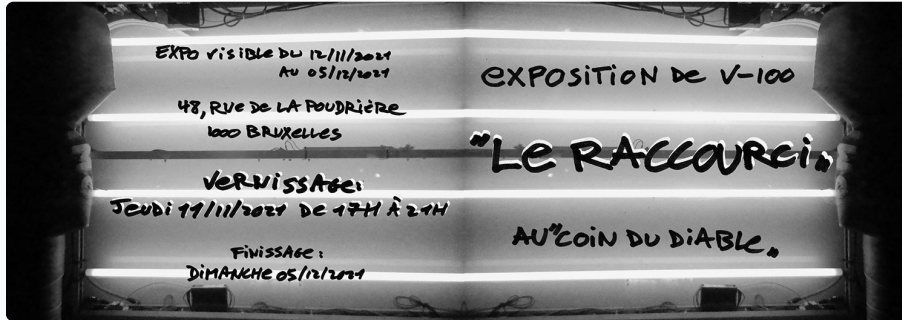 EXPO VISIBLE DU 12/11/2021
AU 05/12/2021
48, RUE DE LA POUDRIÈRE
1000 BRUXELLES
VERNISSAGE:
JEUDI 11/11/2021 DE 17H À 21H
FINISSAGE:
DIMANCHE 05/12/2021
EXPOSITION DE V-100
"LE RACCOURCI"
AU "COIN DU DIABLE"